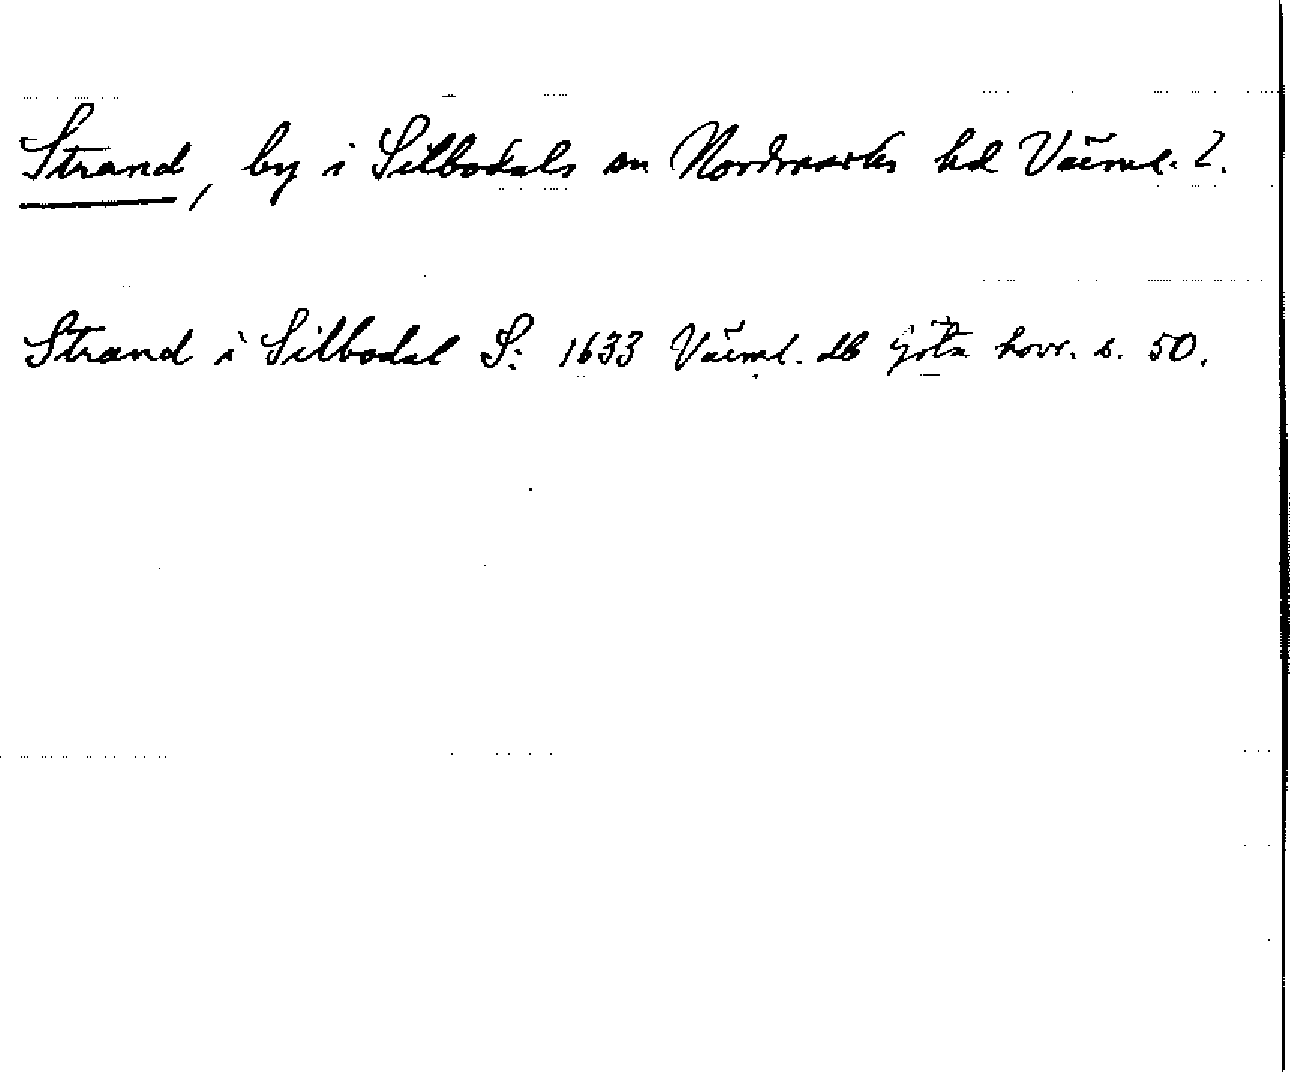 Strand, by i Silbodals sn Nordmarks hd Värml. ?.
Strand i Silbodal S: 1633 Värml. db Göta hovr. s. 50.